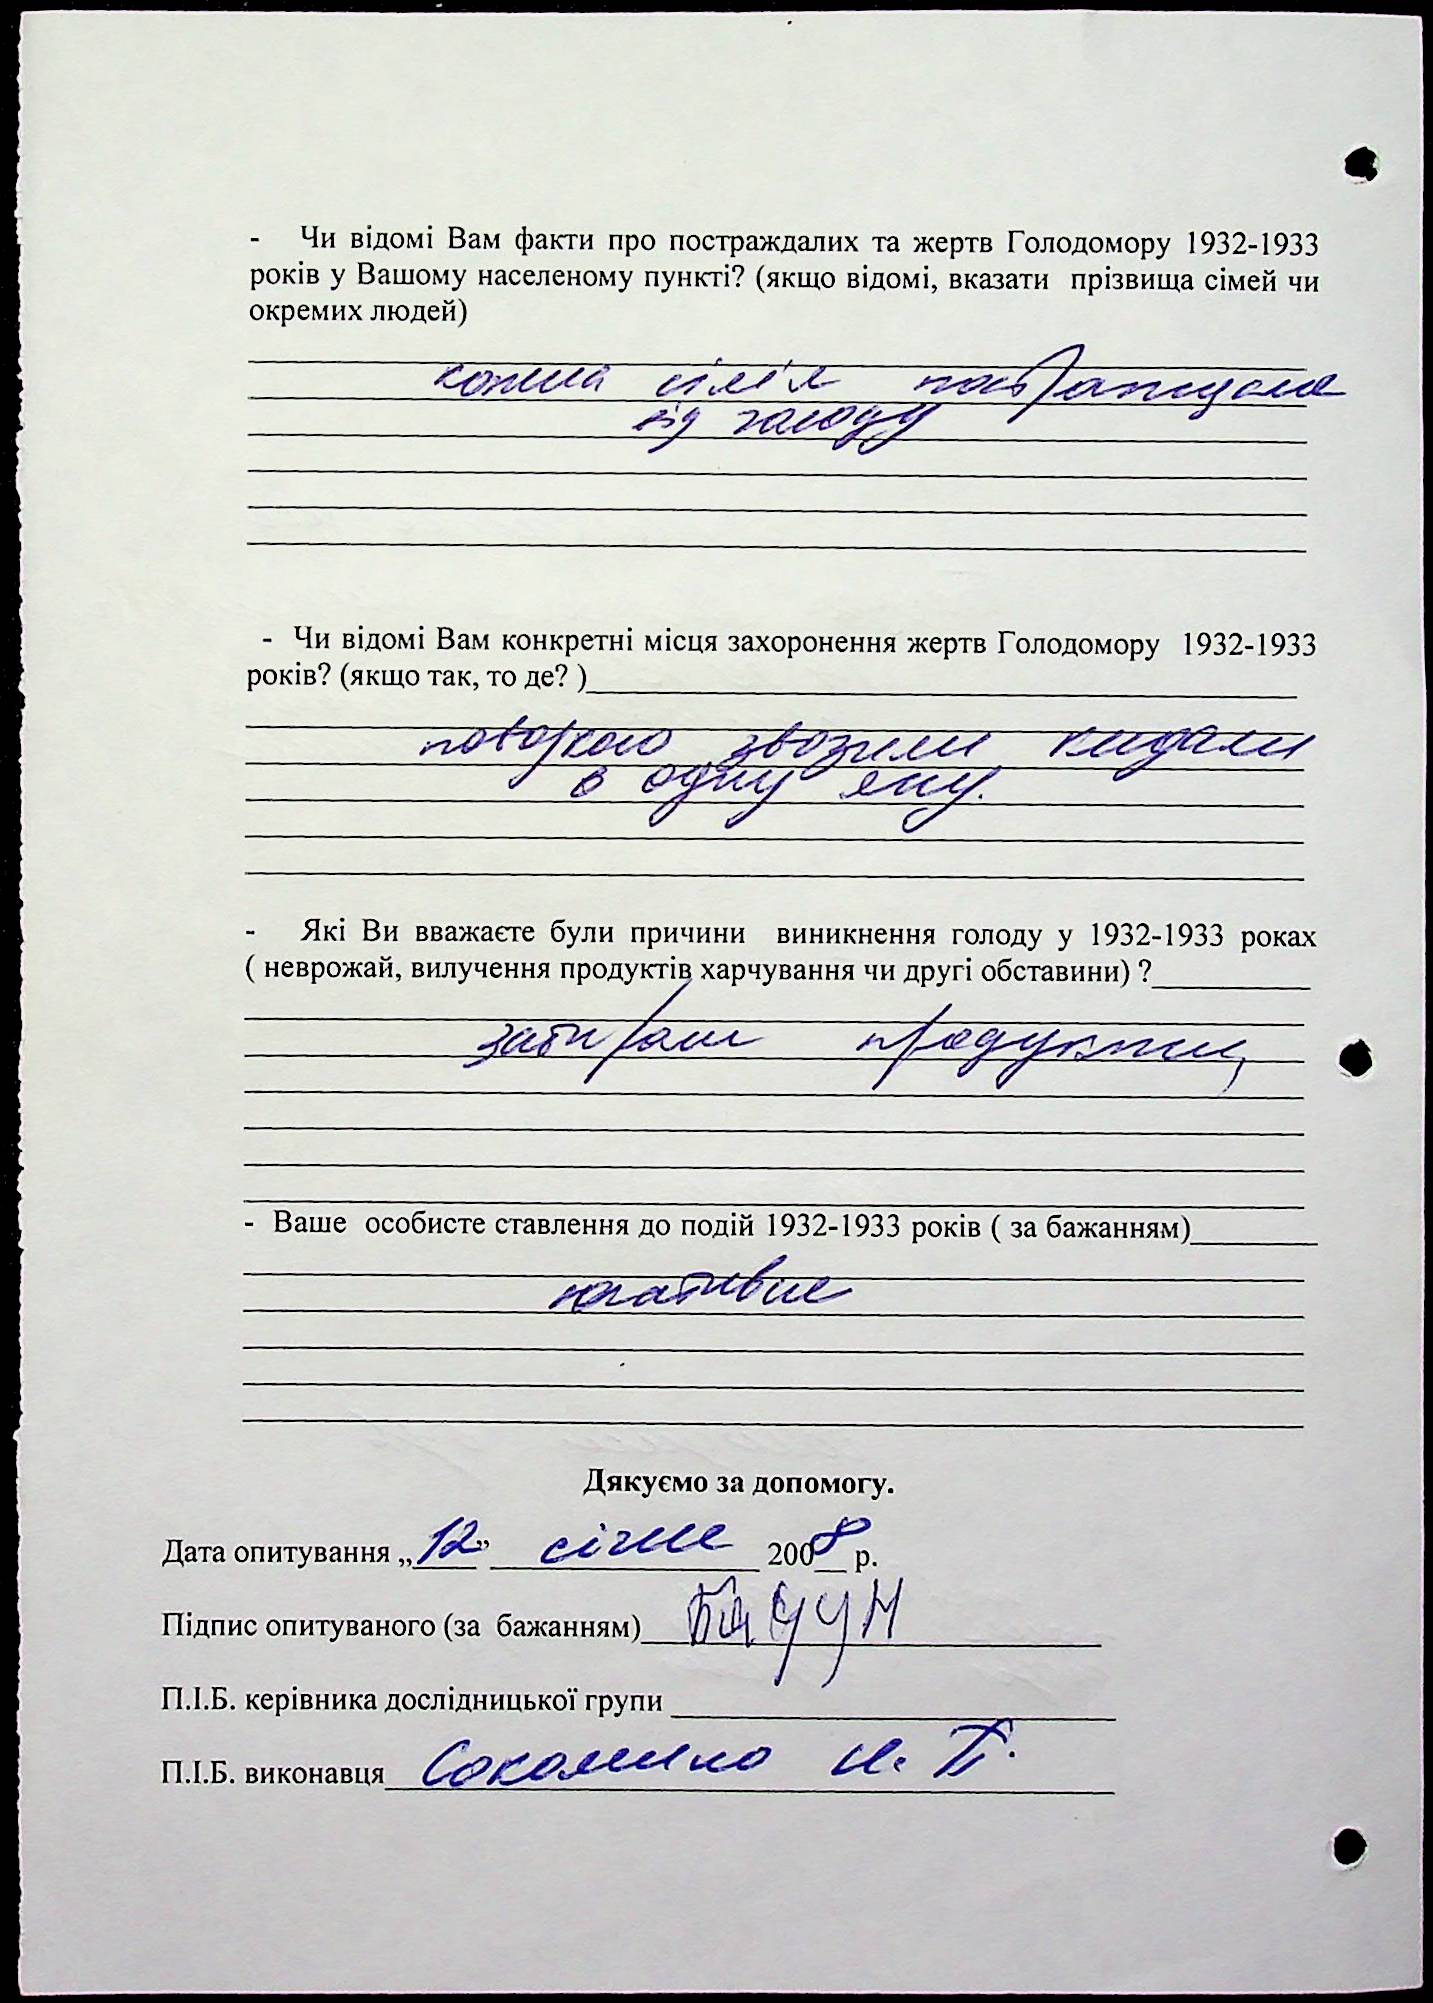 - Чи відомі Вам факти про постраждалих та жертв Голодомору 1932-1933
років у Вашому населеному пункті? (якщо відомі, вказати прізвища сімей чи
окремих людей)
кожна сім'я постраждала
від голоду
- Чи відомі Вам конкретні місця захоронення жертв Голодомору 1932-1933
років? (якщо так, то де? )
звозили кидали
в одну яму.
- Які Ви вважаєте були причини виникнення голоду у 1932-1933 роках
( неврожай, вилучення продуктів харчування чи другі обставини) ?
забирали продукти,
- Ваше особисте ставлення до подій 1932-1933 років ( за бажанням)
негативне
Дякуємо за допомогу.
Дата опитування „12” січня 2008 р.
Підпис опитуваного (за бажанням)
П.І.Б. керівника дослідницької групи
П.І.Б. виконавця